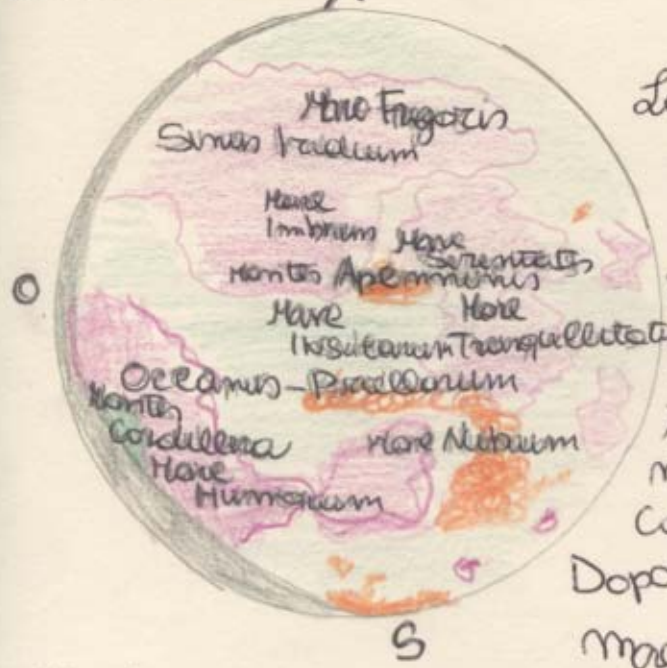 Mare Frigoris
Sinus Iridium
Mare
Imbrium
Mare
Serenitatis
Montes Apenninis
O
Mare
Mare
Insularum Tranquillitati
Oceanus-Procellarum
Montes
Cordillera
Mare Nubium
Mare
Humorum
Dopo
S